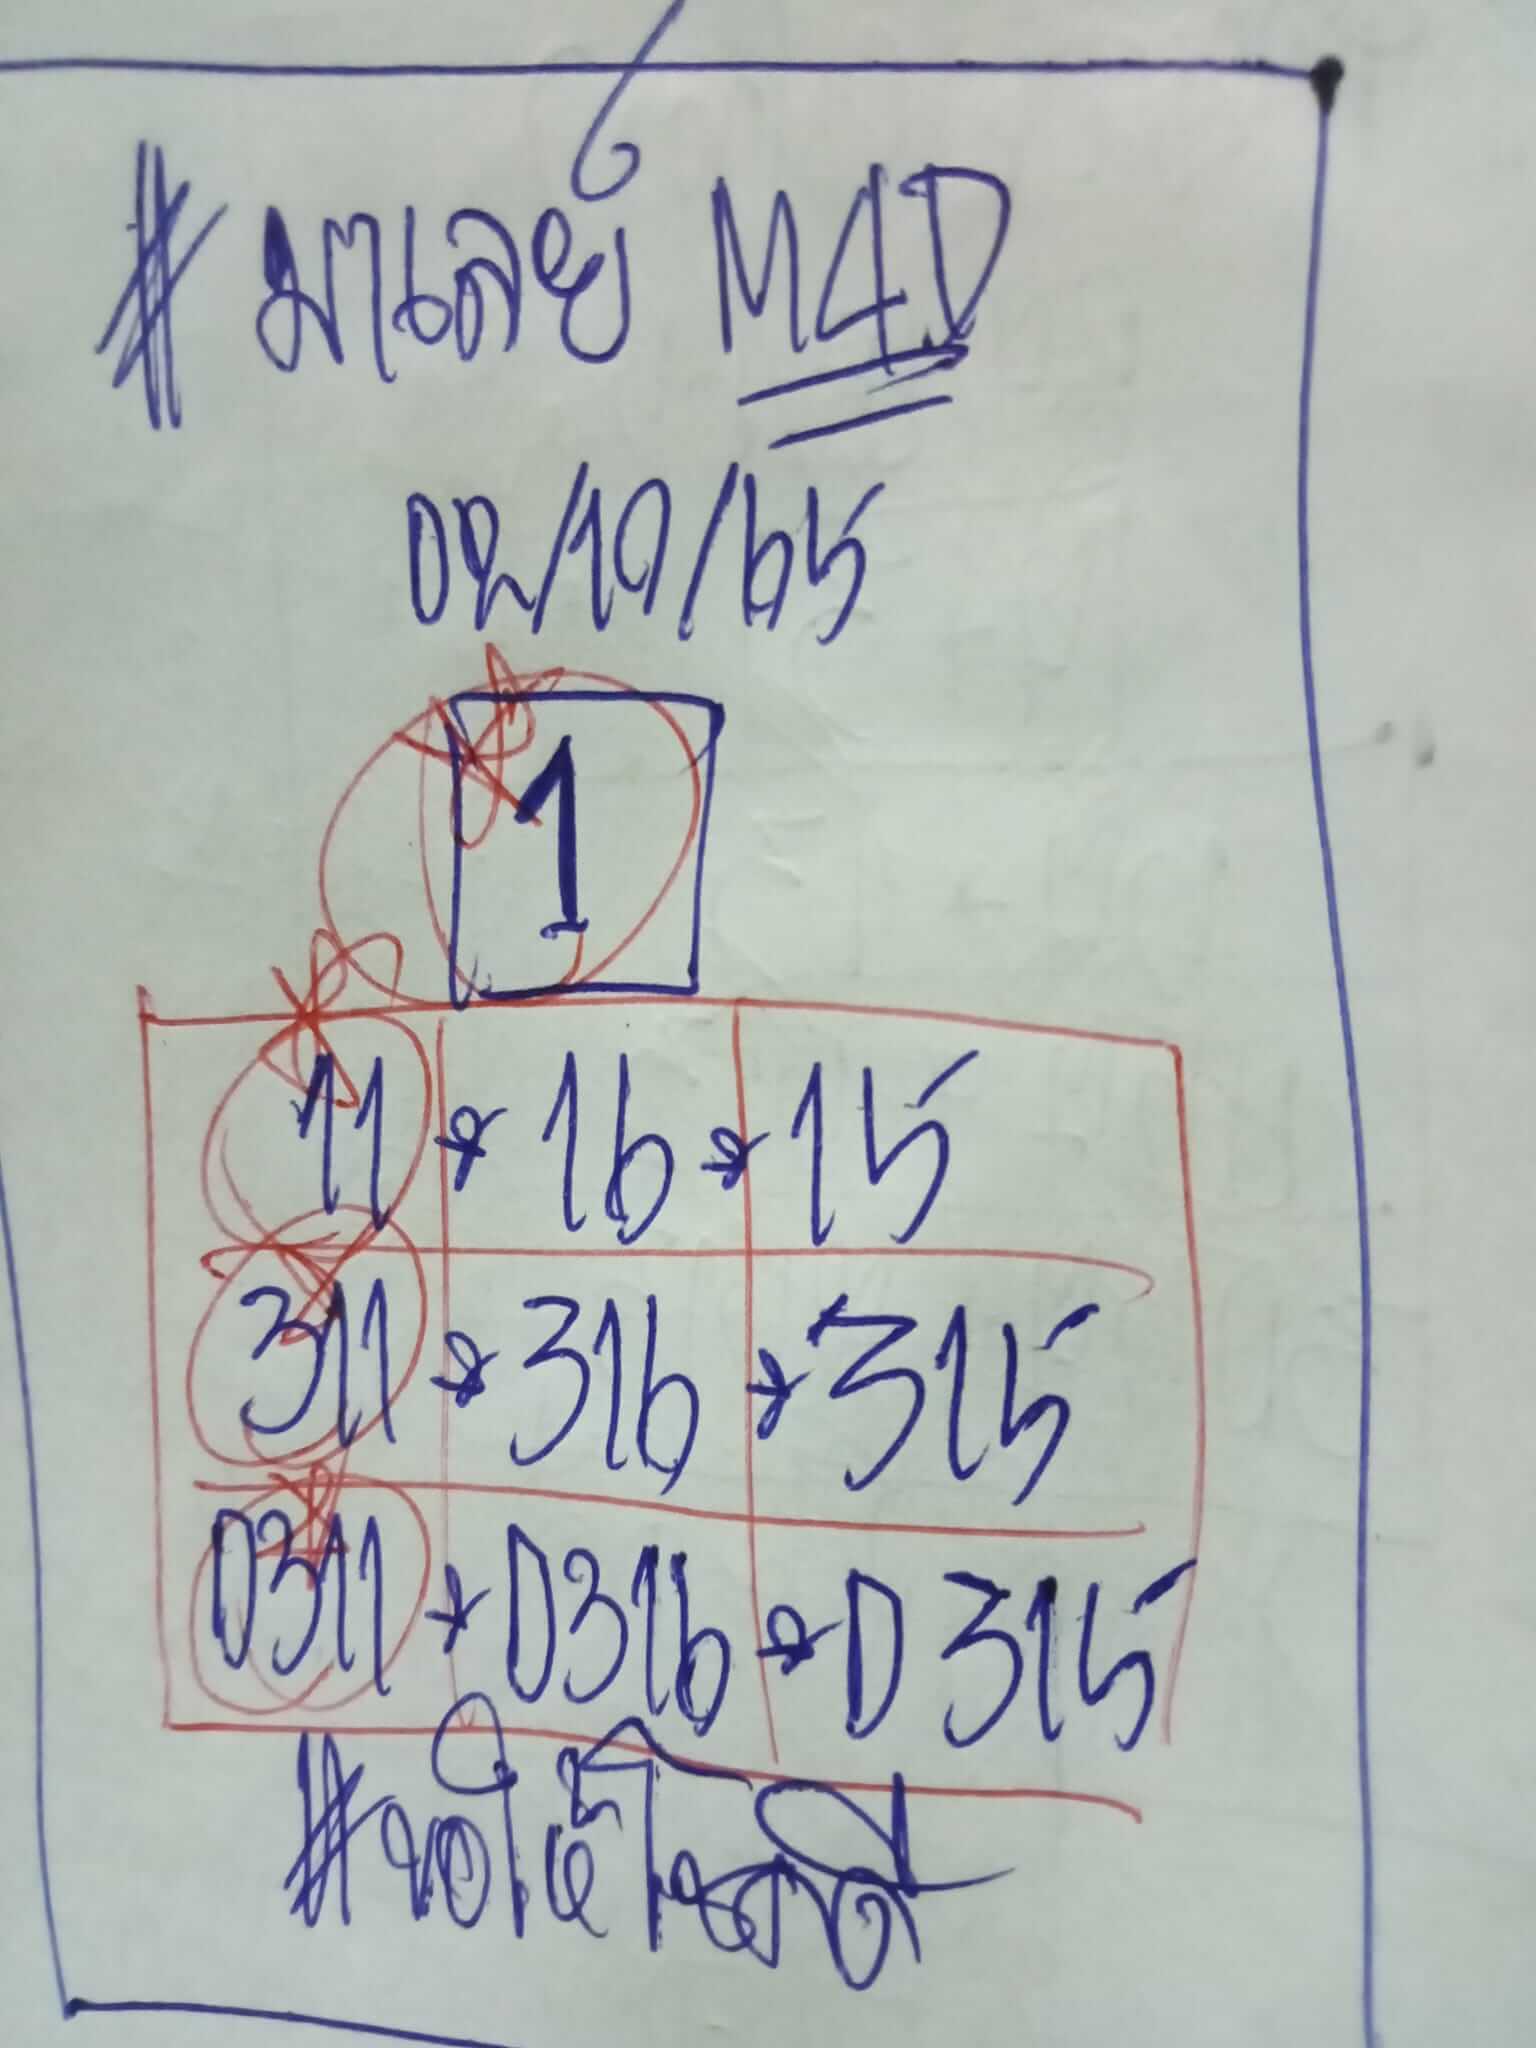 # มาเลย์ M4D
02/10/65
1
11 * 16 * 15
311 * 316 * 315
0311 * 0316 * 0315
#ขอให้โชคดี